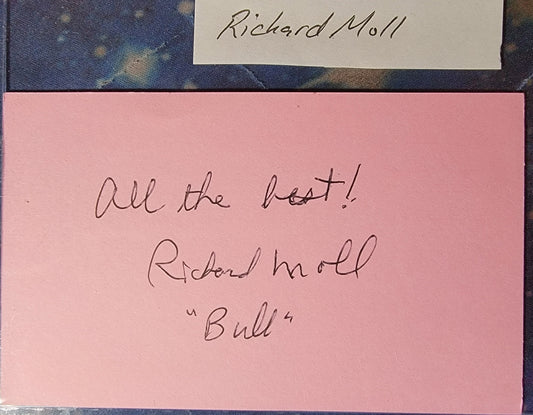 Richard Moll
All the best!
Richard Moll
"Bull"